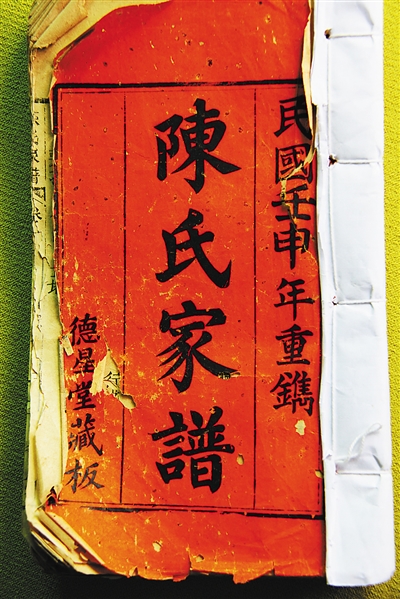 民國壬申年重鐫
陳氏家譜
德星堂藏板